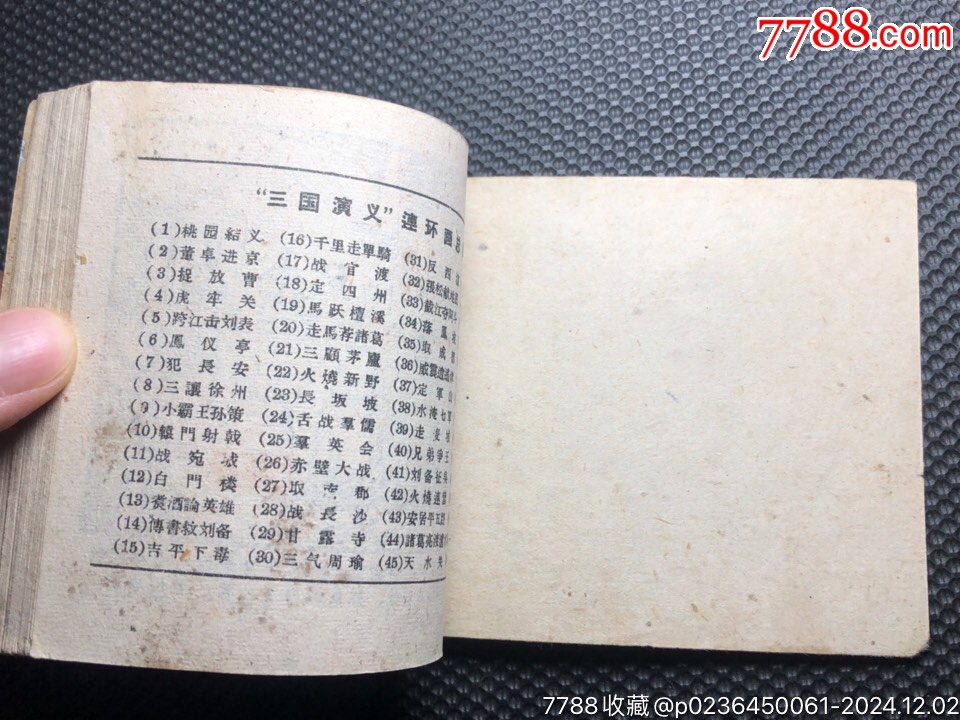 7788.com
“三国演义”連环画总
(1)桃园結义
(2)董卓进京
(3)捉放曹
(4)虎牢关
(5)跨江击刘表
(6)鳳仪亭
(7)犯長安
(8)三讓徐州
(9)小霸王孙策
(10)轅門射戟
(11)战宛城
(12)白門楼
(13)煑酒論英雄
(14)傳書救刘备
(15)吉平下毒
(16)千里走單騎
(17)战官渡
(18)定四州
(19)馬跃檀溪
(20)走馬荐諸葛
(21)三顧茅廬
(22)火燒新野
(23)長坂坡
(24)舌战羣儒
(25)羣英会
(26)赤壁大战
(27)取南郡
(28)战長沙
(29)甘露寺
(30)三气周瑜
(31)反西
(32)張松献地
(33)截江夺阿
(34)落鳳
(35)取成
(36)威震逍遥
(37)定軍山
(38)水淹七
(39)走麦
(40)兄弟爭王
(41)刘备征吳
(42)火燒連營
(43)安居平五
(44)諸葛亮
(45)天水关
7788收藏@p0236450061-2024.12.02